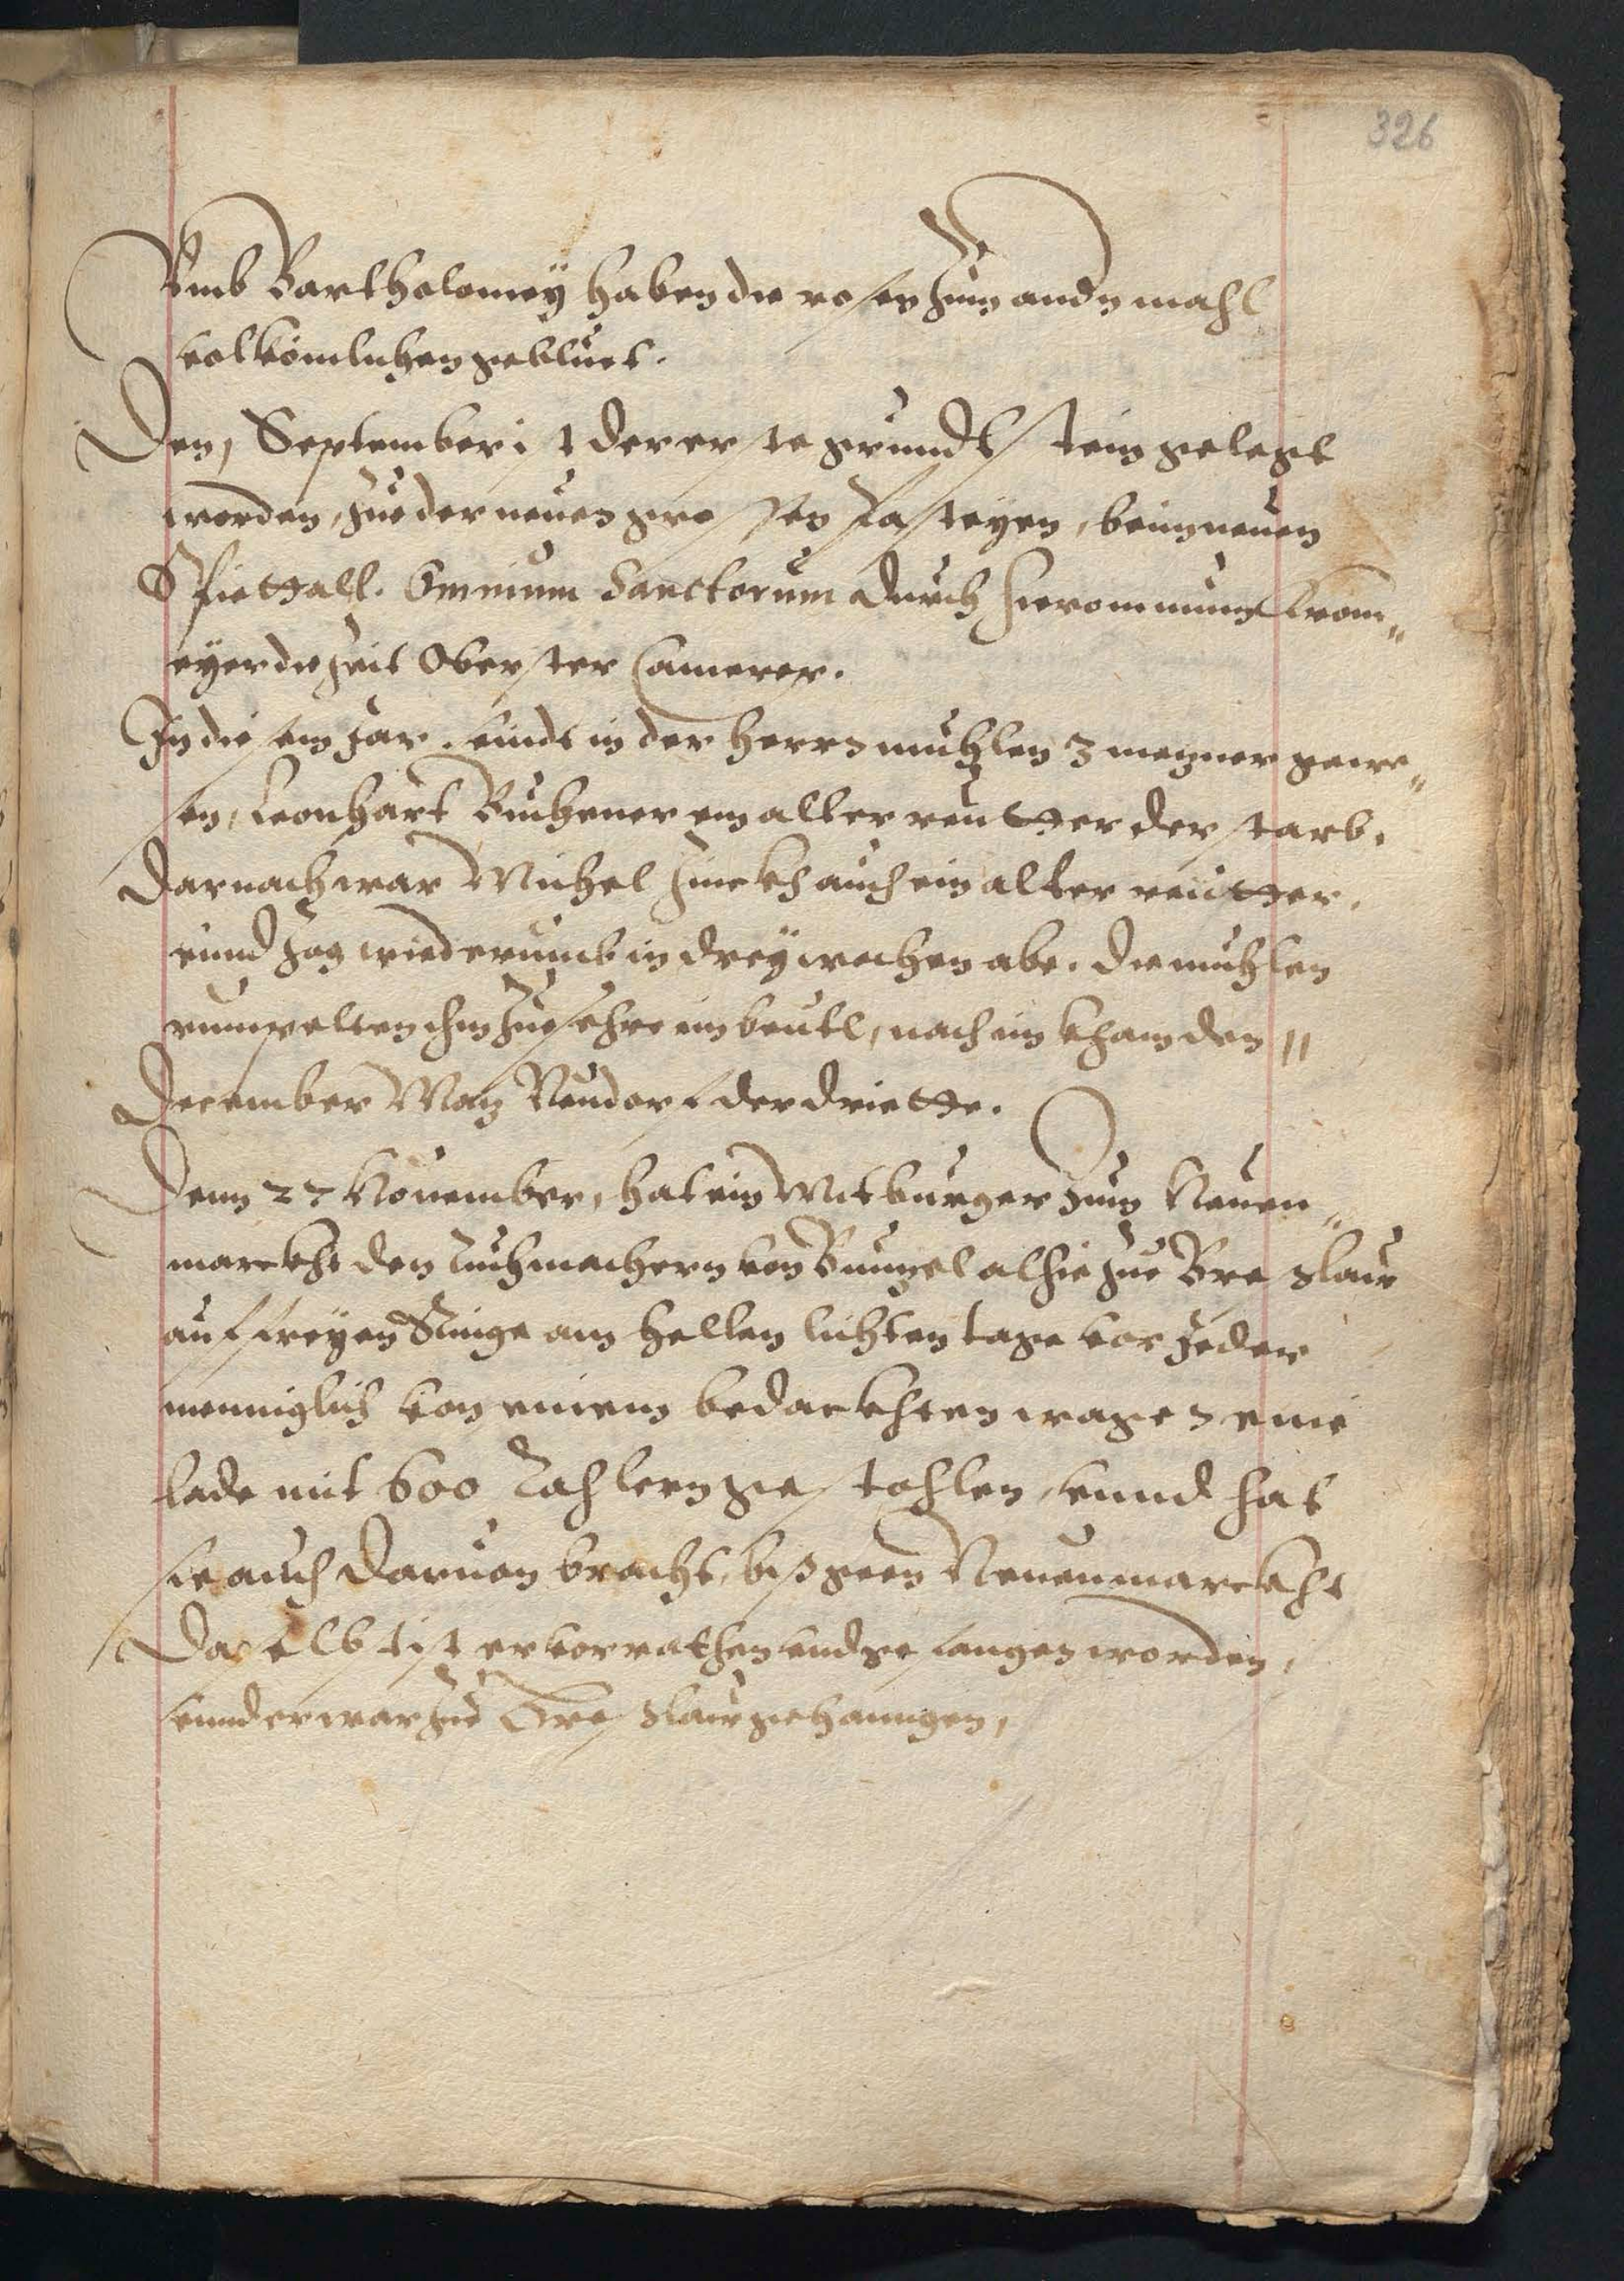 326
Vmb Bartholomey haben die rosen zum andn mahl
volkömlichen geblüet.
Den, September ist der erste grundtstein gelegt
worden, zue der neuen grossen Pasteyen, beim neuen
Spiettall. Omnium Sanctorum durch Hieronimum Krom„
eyer die zeit Oberster Camerer.
In diesem Jar. seindt in der Herrn mühlen 3 metzner gewe„
sen, Leonhart Büchener ein alter reutter der starb.
Darnach war Michel auch ein alter reütter.
vnnd zog wiederumb in drey wochen abe. die mühlen
rumpelten ihm zue sehre im beutl, nach im kham den 11
December Matz Neudorf der driette.
Denn 22 Nouember, hat ein Mitbürger zum Neuen„
marckht den Tuchmachern von Buntzel alhie zue Breslaw
auf freyen Ringe am hellen lichten tage vor jeder
menniglich von, einem bedeckhten wagen eine
lade mit 600 Tahlern gestohlen, vnnd hat
sie auch daruon bracht, biß geen Neuenmarckht
Daselbst ist er verrathen vnd gefangen worden,
vnnd er war zue Breslaw gehanngen,